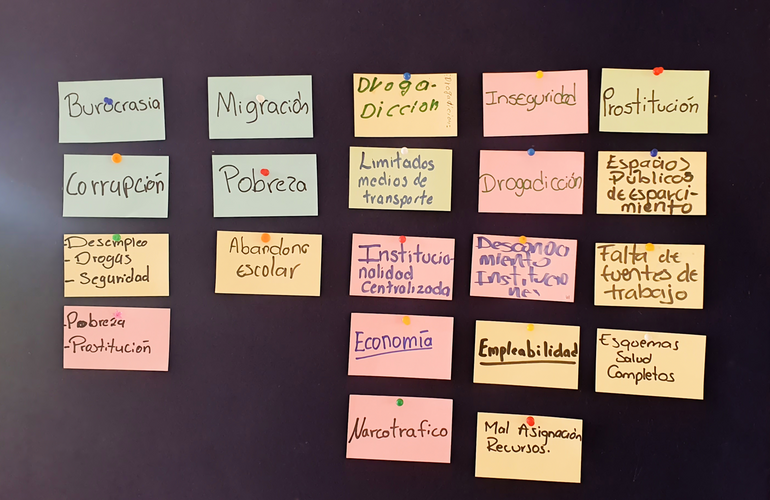 Burocrasia
Corrupción
-Desempleo
- Drogas
- Seguridad
-Pobreza
-Prostitución
Migración
Pobreza
Abandono
escolar
Droga-
Diccion
Limitados
medios de
transporte
Institucio-
nalidad
Centralizada
Economía
Narcotrafico
Inseguridad
Drogadicción
Desconoci
miento
Institucio
nes
Empleabilidad
Mal Asignación
Recursos.
Prostitución
Espacios
Públicos
de esparci-
miento
Falta de
fuentes de
trabajo
Esquemas
Salud
Completos